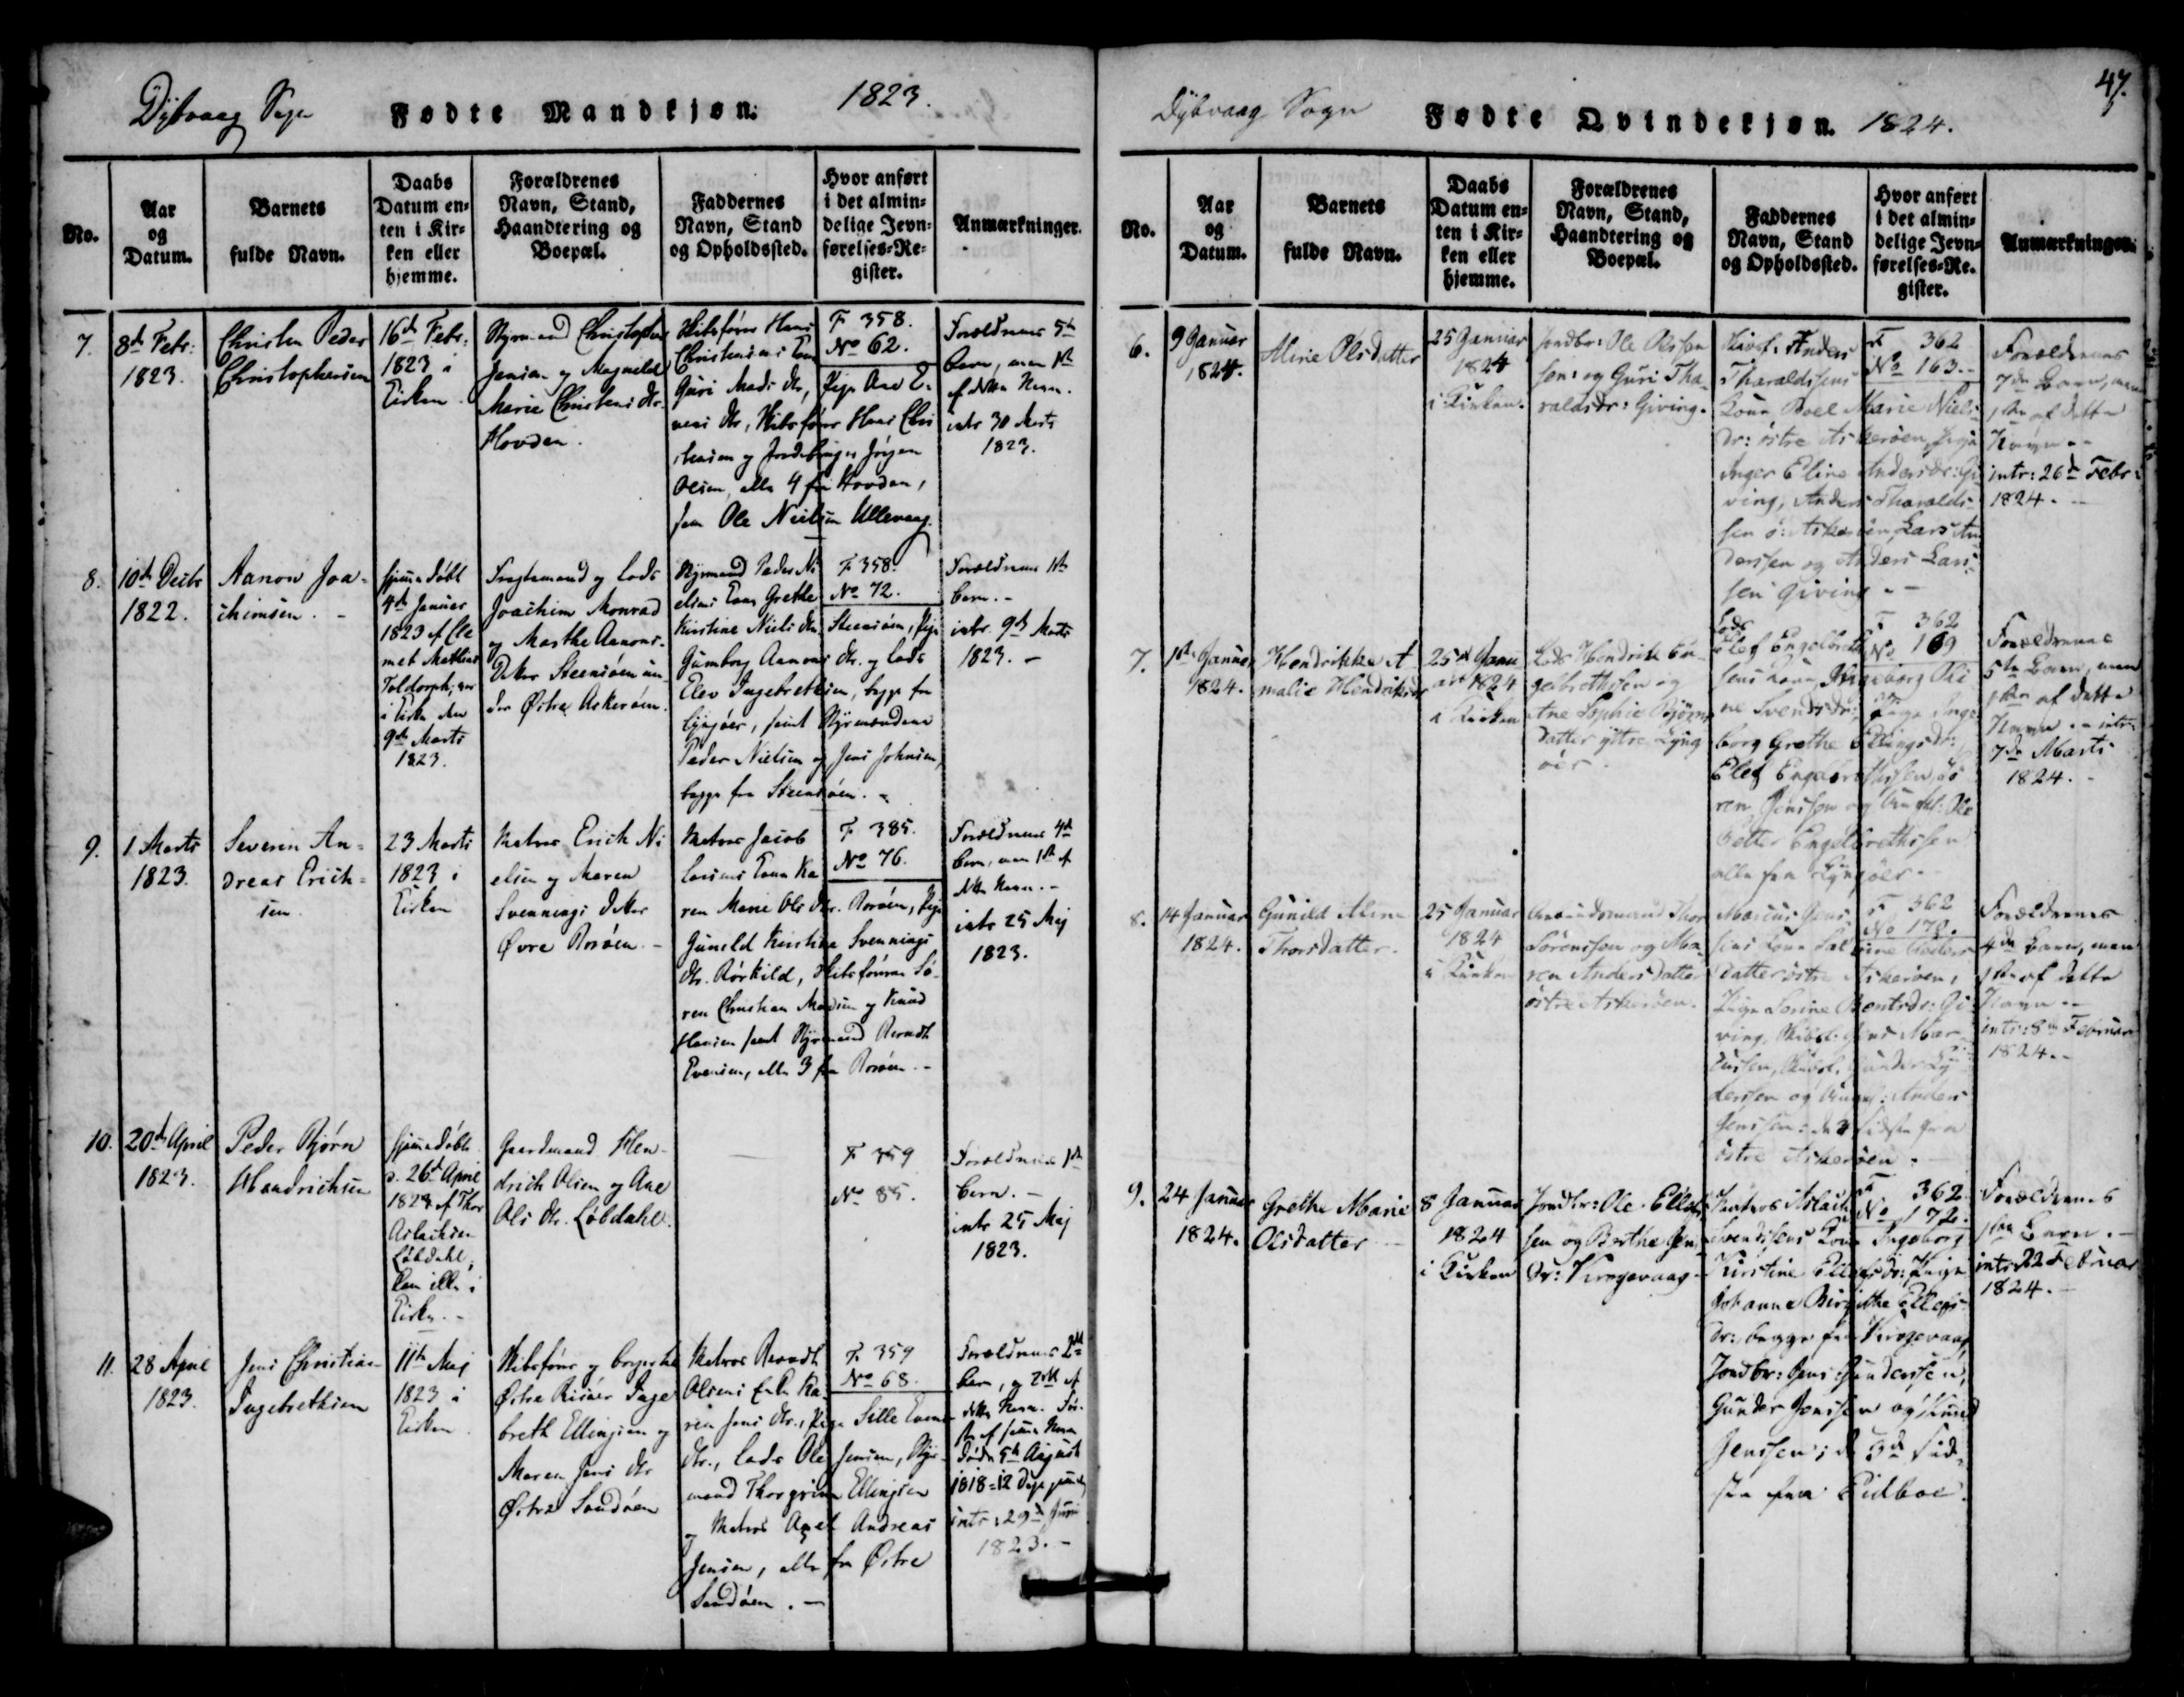 Dybvaag Sogn
Fødte Mandkjøn.
1823.
No.
Aar
og
Datum.
Barnets
fulde Navn.
Daabs
Datum en-
ten i Kir-
ken eller
hjemme.
Forældrenes
Navn, Stand,
Haandtering og
Boepæl.
Faddernes
Navn, Stand
og Opholdssted.
Hvor anført
i det almin-
delige Jevn-
førelses-Re-
gister.
Anmærkninger.
7.
8de Febr:
1823.
Christen Peder
Christophersen
16de Febr:
1823 i
Kirken.
Styrmand Christopher
Jensen og Magnild
Marie Christens Dtr.
Hovden.
Skibsfører Hans
Christensens Kone
Guri Mads Dtr, Pige Ane E-
vens Dtr, Skibsfører Hans Chri
stensen og Jordbruger Jørgen
Olsen, alle 4 fra Hovden,
samt Ole Nielsen Ullevaag.
F. 358.
No 62.
Forældrenes 5te
Barn, men 1ste
af dette Navn.
intr 30 Marts
1823.
8.
10de Decbr
1822.
Aanon Joa-
chimsen.
hjemedøbt
4de Januar
1823 af Cle
met Mathias
Toldorph; var
i Kirke den
9de Marts
1823.
Joachim Monrad
og Marthe Aanons-
Datter Steensøen un-
der Østre Askerøen.
Styrmand Peder Ni
elsens Kone Grethe
Kirstine Niels Dtr. Steensøen, Pige
Gumborg Aanons Dtr. og Lods
Elev Ingebretsen, begge fra
Lyngøer, samt Styrmændene
Peder Nielsen og Jens Johnsen,
begge fra Steensøen.
F. 358.
No 72.
Forældrenes 1ste
Barn.
intr. 9de Marts
1823.
9.
1 Marts
1823.
Severin An-
dreas Erich-
sen.
23 Marts
1823 i
Kirken
Matros Erich Ni
elsen og Maren
Svennings Datter
Øvre Borøen.
Matros Jacob
Larsens Kone Ka
ren Marie Ols Dtr. Borøen, Pige
Guneld Kirstine Svennings
Dtr. Rørkild, Skibsførerne Sø-
ren Christian Madsen og Knud
Hansen samt Styrmand Berndt
Evensen, alle 3 fra Borøen.
F. 385.
No 76.
Forældrenes 4de
Barn, men 1ste af
dette Navn.
intr 25 Maj
1823.
10.
20de April
1823.
Peder Bjørn
Hendrichsen
hjemedøbt
d. 26de April
1823 af Thor
Aslachsen
Løvdahl,
kom ikke i
Kirke.
Gaardmand Hen-
drich Olsen og Ane
Ols Dtr. Løvdahl.
F. 359
No 85.
Forældrenes 1ste
Barn.
intr 25 Maj
1823.
11.
28 April
1823.
Jens Christian
Ingebrethsen
11te Maj
1823 i
Kirken.
Skibsfører og Borger til
Østre Riisøer Inge
breth Ellingsen og
Maren Jens Dtr
Østre Sandøen
Matros Berndt
Olsens Enke Ka-
ren Jens Dtr., Pige Sille Evens
Dtr., Lods Ole Jensen, Styr-
mand Thorgrim Ellingsen
og Matros Axel Andreas
Jensen, alle fra Østre
Sandøen.
F. 359
No 68.
Forældrenes 2det
Barn, og 2det af
dette Navn. Før-
ste af samme Navn
døde 5te August
1818=12 Dage gammel
intr: 29de Juni
1823.
47.
Dybvaag Sogn
Fødte Qvindekjøn.
1824.
No.
Aar
og
Datum.
Barnets
fulde Navn.
Daabs
Datum en-
ten i Kir-
ken eller
hjemme.
Forældrenes
Navn, Stand,
Haandtering og
Boepæl.
Faddernes
Navn, Stand
og Opholdssted.
Hvor anført
i det almin-
delige Jevn-
førelses-Re-
gister.
Anmærkninger.
6.
9 Januar
1824.
Aline Olsdatter
25 Januar
1824
i Kirken.
Jordbr: Ole Olssøn
og Guri Tha-
raldsdr: Giving.
Skibsf: Anders
Tharaldssens
Kone Boel Marie Niels-
dr: østre Askerøen, Pige
Inger Eline Andersdr: Gi-
ving, Anders Tharalds-
sen ø: Askerøen, Lars An
dersen og Anders Lars-
sen Giving
F 362
No 163.
Forældrenes
7de Barn, men
1ste af dette
Navn.
intr: 26de Febr:
1824.
7.
1ste Januar
1824.
Hendrikke A
malie Hendriksdr
25de Janu
ar 1824
i Kirken
Lods Hendrik En-
gelbrethsen og
Ane Sophie Bjørns
datter yttre Lyng
øer.
Lods
Elef Engelbreth
sens Kone Ingeborg Oli
ne Svendsdr; Pige Inge
borg Grethe Ellingsdr:
Elef Engelbrethssen, Sø
ren Jenssen og Ungkl: Ole
Petter Engelbrethssen
alle fra Lyngøer.
F 362
No 169
Forældrenes
5te Barn, men
1ste af dette
Navn. intr:
7de Marts
1824.
8.
14 Januar
1824.
Gunild Aline
Thorsdatter.
25 Januar
1824
i Kirken
Thor
Sørenssøn og Ma-
ren Andersdatter
østre Askerøen.
Marcus Jens
sens Kone
Datter østre Askerøen,
Pige Serine Berntsdr: Gi-
ving, Skibsf: Jens Mar-
cussen, Skibsf: Gunder Ly
derssen og Ungk: Anders
Jenssen: de 3 sidste fra
østre Askerøen.
F 362
No 178.
Forældrenes
4de Barn, men
1ste af dette
Navn.
intr: 8de Februar
1824.
9.
24 Januar
1824.
Grethe Marie
Olsdatter
8 Januar
1824
i Kirken
Jordbr: Ole Ellefs
sen og Berthe Jens
dr: Krogevaag
Matros Aslach
Svendsens Kone Ingeborg
Kirstine Ellefsdr: Pige
Johanne Birgithe Ellefs-
dr: begge fra Krogevaag,
Jordbr: Jens Gunderssen,
Gunder Jenssen og Knud
Jenssen; de 3de sid-
ste fra Eidboe.
F 362
No 172.
Forældrenes
1ste Barn.
intr: 22 Februar
1824.